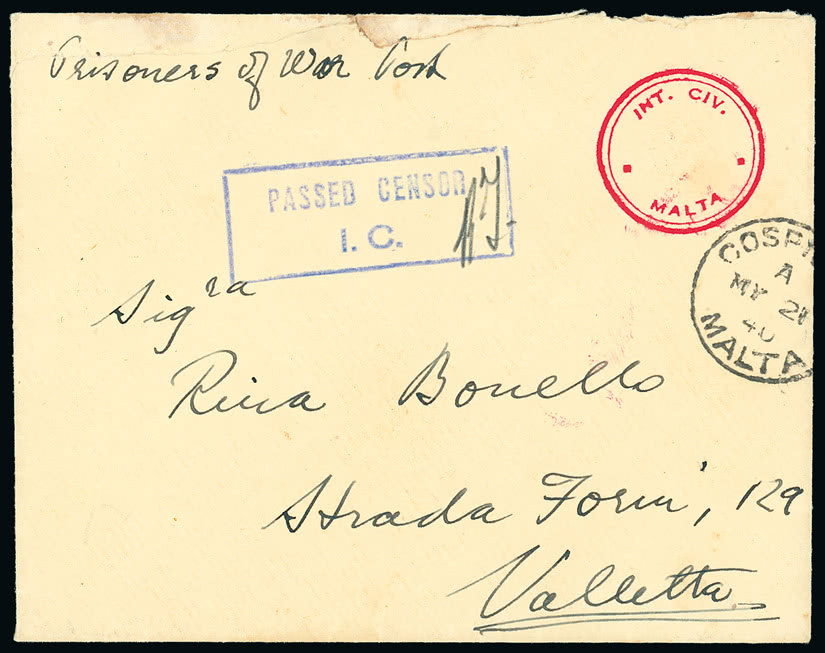 Prisoners of War Post
INT. CIV.
MALTA
PASSED CENSOR
I. C.
COSPI
A
MY 21
40
MALTA
Sigra
Rina Bonello
Strada Forni, 129
Valletta